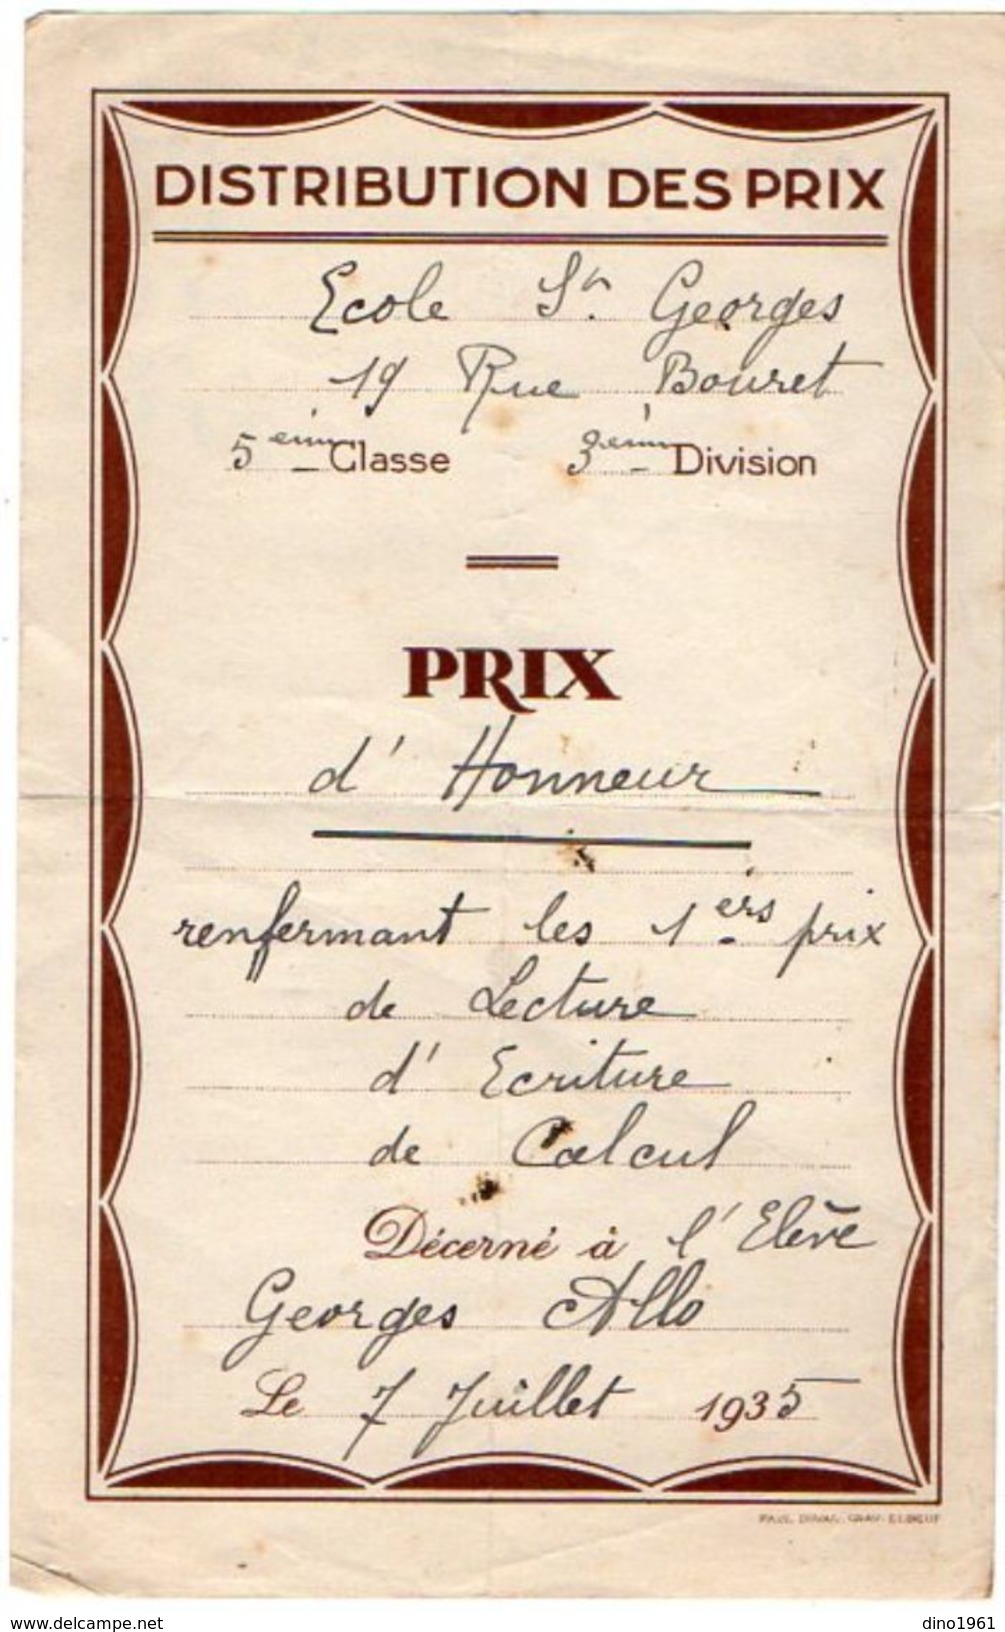 DISTRIBUTION DES PRIX
Ecole St. Georges
19 Rue Bouret
5ème Classe 3ème Division
PRIX
d'Honneur
renfermant les 1ers prix
de Lecture
d'Ecriture
de Calcul
Décerné à l'Elève
Georges Allo
Le 7 Juillet 1935
PAUL DUVAL. GRAV. ELBEUF
www.delcampe.net
dino1961